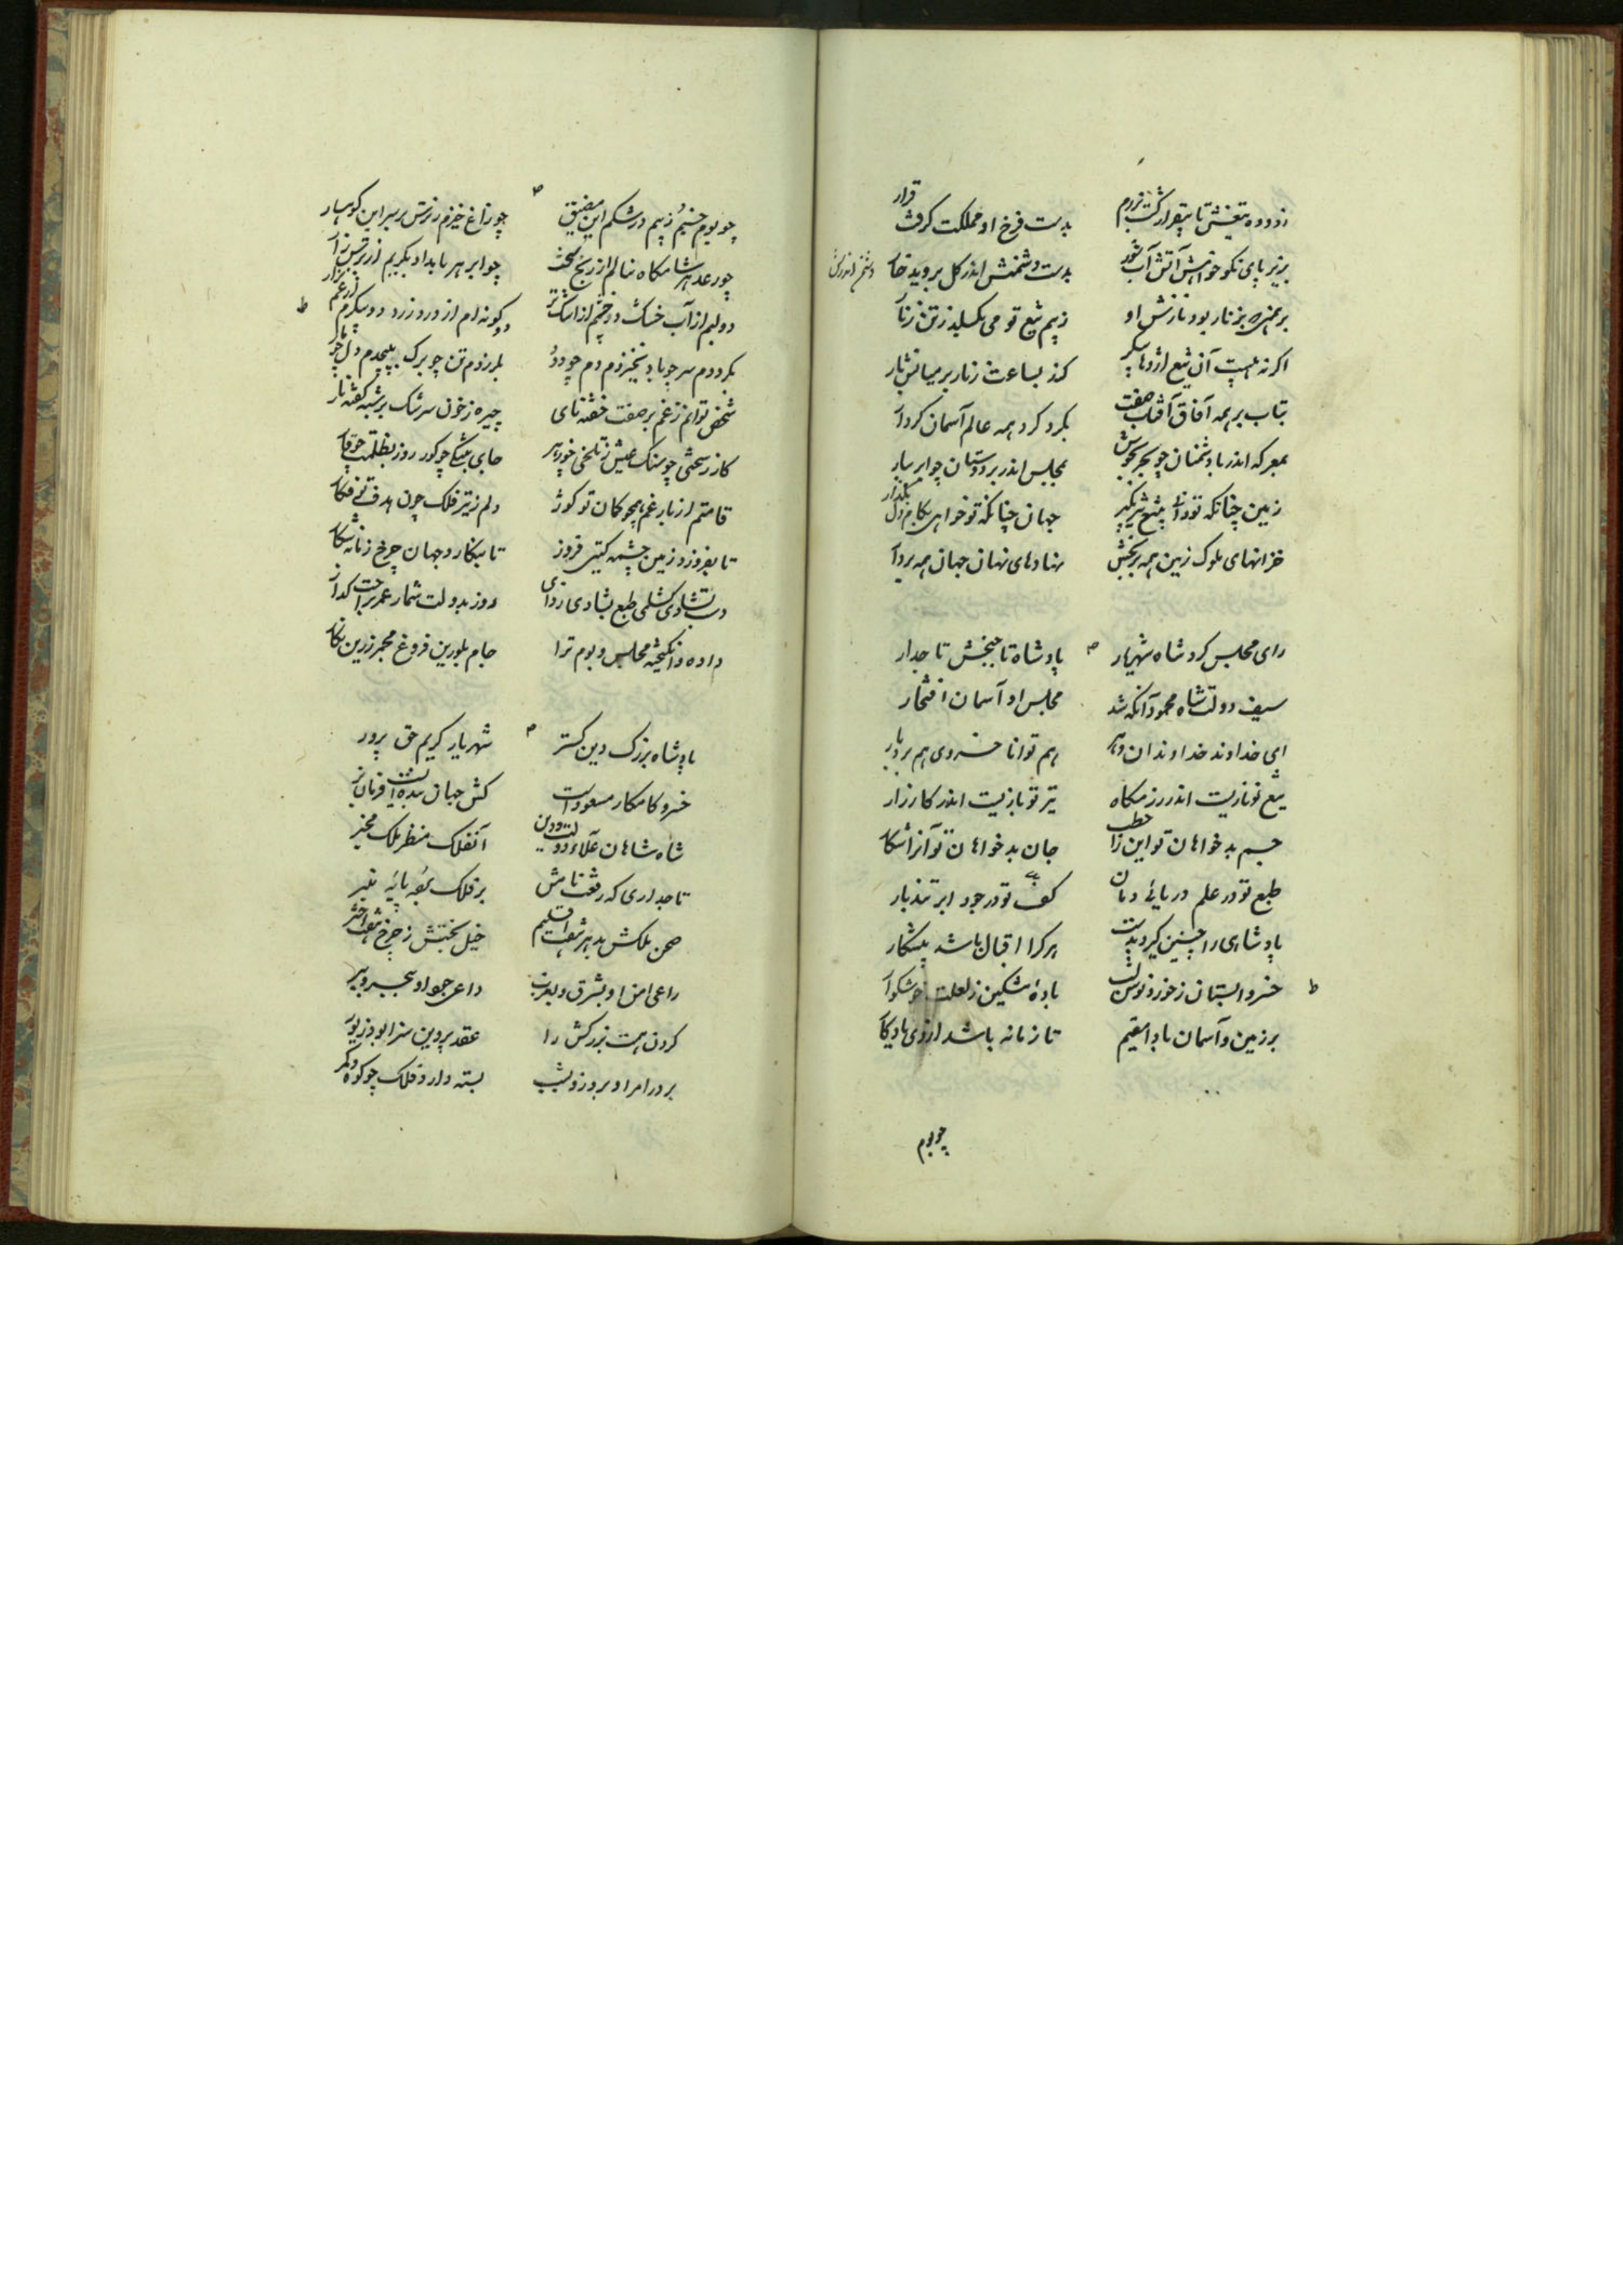 ز دوده تیغش تا بیقرار گشت برزم بدست فرخ او مملکت گرفت قرار
بزیر پای نکو خواهش آتش آب شود بدست دشمنش اندر گل بروید خار
برهمن که بزنار بود نازش او ز بیم تیغ تو می بگسلد ز تن زنار
اگر نه هست آن تیغ اژدها پیکر کند بساعت زنار بر میانش مار
بتاب بر همه آفاق آفتاب صفت بگرد گرد همه عالم آسمان کردار
بمعرکه اندر با دشمنان چو بحر بجوش بمجلس اندر بر دوستان چو ابر ببار
زمین چنانکه تو دانی بتیغ تیز بگیر جهان چنانکه تو خواهی بکام دل بگذار
خزانهای ملوک زمین همه بر بخش نهادهای نهان جهان همه بردار
رای مجلس کرد شاه شهریار پادشاه تاجبخش تاجدار
سیف دولت شاه محمود آنکه شد مجلس او آسمان افتخار
ای خداوند خداوندان دهر هم توانا خسروی هم بردبار
تیغ تو نازیست اندر رزمگاه تیر تو بازیست اندر کارزار
جسم بدخواهان تو این را حطب جان بدخواهان تو آنرا شکار
طبع تو در علم دریائی دمان کف تو در جود ابر تندبار
پادشاهی را چنین گیرد بدست هر کرا اقبال باشد پیشکار
خسروا بستان ز خور و نوش لب باده مشکین ز لعلت خوشگوار
بر زمین و آسمان بادا مقیم تا زمانه باشد از وی یادگار
چو بوم
چو بوم خسبم ز بیم در شکم این مضیق چو زاغ خیزم ز ترس بر سر این کوهسار
چو رعد هر شامگاه نالم از رنج سخت چو ابر هر بامداد بگریم از ترس زار
دو لبم از آب خشک دو چشم از اشک تر دو گونه ام از درد زرد دو پیکرم از غم نزار
بگرددم سر چو باد بخیزدم دم چو دود بلرزدم تن چو برگ بپیچدم دل چو مار
شخص توانم ز غم بر صفت خفته نای چهره ز خون سرشک بر شبه کفته نار
کار ز سختی چو سنگ عیش ز تلخی چو زهر جای ز تنگی چو گور روز ز ظلمت چو قار
قامتم از بار غم همچو کمان تو کوژ دلم ز تیر فلک چون هدف تو فکار
تا بفروزد زمین چشمه گیتی فروز تا بنگارد جهان چرخ زمانه نگار
دست بشادی گشای طبع بشادی زدای روز بدولت شمار عمر براحت گذار
داده و انگیخته مجلس و بوم ترا جام بلورین فروغ مجمر زرین بخار
پادشاه بزرگ دین گستر شهریار کریم حق پرور
خسرو کامکار مسعود است کش جهان بنده ایست فرمان بر
شاه شاهان علاء دولت و دین آن فلک منظر ملک مخبر
تاجداری که رفعت نامش بر فلک بقعه پایه منبر
صحن ملکش بد هر هفت اقلیم خیل بختش ز چرخ هفت اختر
راعی امن او بشرق و بغرب داعی جود او ببحر و ببر
گردن همت بزرگش را عقد پروین سزا بود زیور
بر در امر او بروز و بشب بسته دارد فلک چو کوه کمر